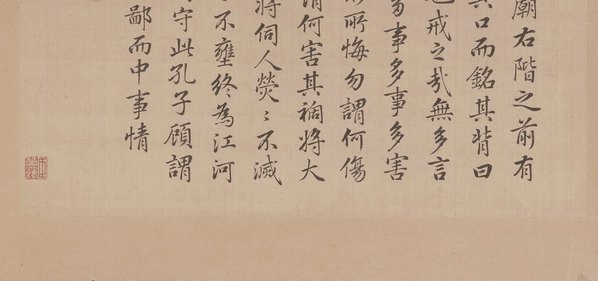 廟右階之前有
其口而銘其背曰
也戒之哉無多言
多事多事多害
所悔勿謂何傷
謂何害其禍將大
將伺人熒〻不滅
不壅終為江河
守此孔子顧謂
鄙而中事情